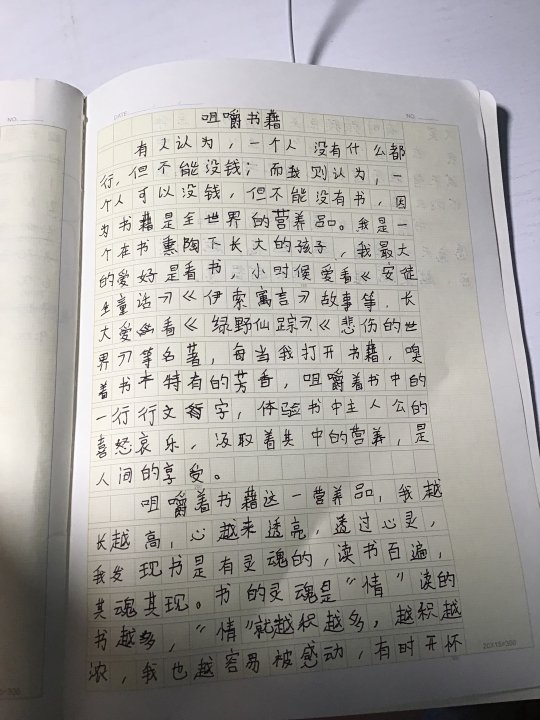 NO.
DATE
NO.
咀嚼书籍
有人认为，一个人没有什么都
行，但不能没钱；而我则认为，一
个人可以没钱，但不能没有书，因
为书籍是全世界的营养品。我是一
个在书熏陶下长大的孩子，我最大
的爱好是看书，小时候爱看《安徒
生童话》《伊索寓言》故事等，长
大爱看《绿野仙踪》《悲伤的世
界》等名著，每当我打开书籍，嗅
着书本特有的芳香，咀嚼着书中的
一行行文字，体验书中主人公的
喜怒哀乐，汲取着其中的营养，是
人间的享受。
咀嚼着书籍这一营养品，我越
长越高，心越来透亮，透过心灵，
我发现书是有灵魂的，读书百遍，
其魂其现。书的灵魂是“情”读的
书越多，“情”就越积越多，越积越
浓，我也越容易被感动，有时开怀
20X15=300